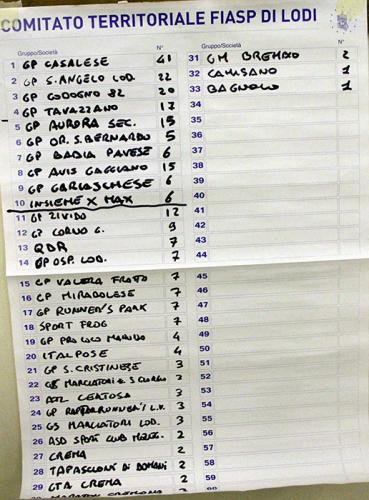 COMITATO TERRITORIALE FIASP DI LODI
Gruppo/Società N°
1 GP CASALESE 41
2 GP S. ANGELO LOD. 22
3 GP CODOGNO 82 20
4 GP TAVAZZANO 17
5 GP AURORA SEC. 15
6 GP OR. S. BERNARDO 5
7 GP BADIA PAVESE 6
8 GP AVIS GAGGIANO 15
9 GP GARLASCHESE 6
10 INSIEME X MAX 6
11 GP ZIVIDO 12
12 GP CORNO G. 9
13 QDR 7
14 GP OSP. LOD. 7
15 GP VALERA FRATTA 7
16 GP MIRADOLESE 7
17 GP RUNNER'S PARK 7
18 SPORT FROG 7
19 GP PRO LOCO 4
20 ITALPOSE 4
21 GP S. CRISTINESE 3
22 MARCIATORI 3
23 ATL CERTOSA 3
24 GP L.V. 3
25 GS MARCIATORI LOD. 3
26 ASD SPORT CLUB 2
27 CREMA 2
28 TAPASCIONI DI DOMANI 2
29 GTA CREMA 2
CREMONA
Gruppo/Società N°
31 GM 2
32 CAMISANO 1
33 BAGNOLO 1
34
35
36
37
38
39
40
41
42
43
44
45
46
47
48
49
50
51
52
53
54
55
56
57
58
59